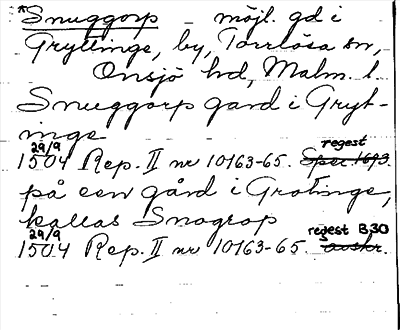 *Snuggorp - möjl. gd i
Gryttinge, by, Torrlösa sn,
Onsjö hd, Malm. l.
Snuggorp gard i Gryt-
inge
29/9 regest
1504 Rep. II nr 10163-65. Sper. 1693.
på een gård i Grotinge,
kallas Snogrop
29/9 regest B30
1504 Rep. II nr 10163-65. avskr.